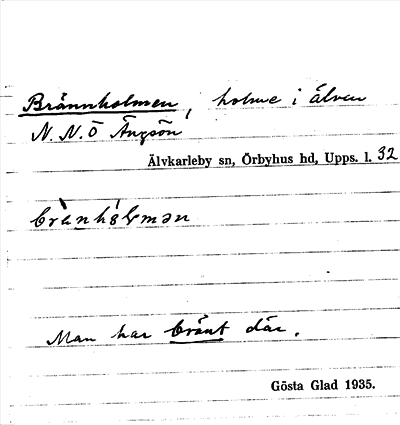 Brännholmen, holme i älven
N. N. Ö Ängsön
Älvkarleby sn, Örbyhus hd, Upps. l. 32
Man har bränt där.
Gösta Glad 1935.